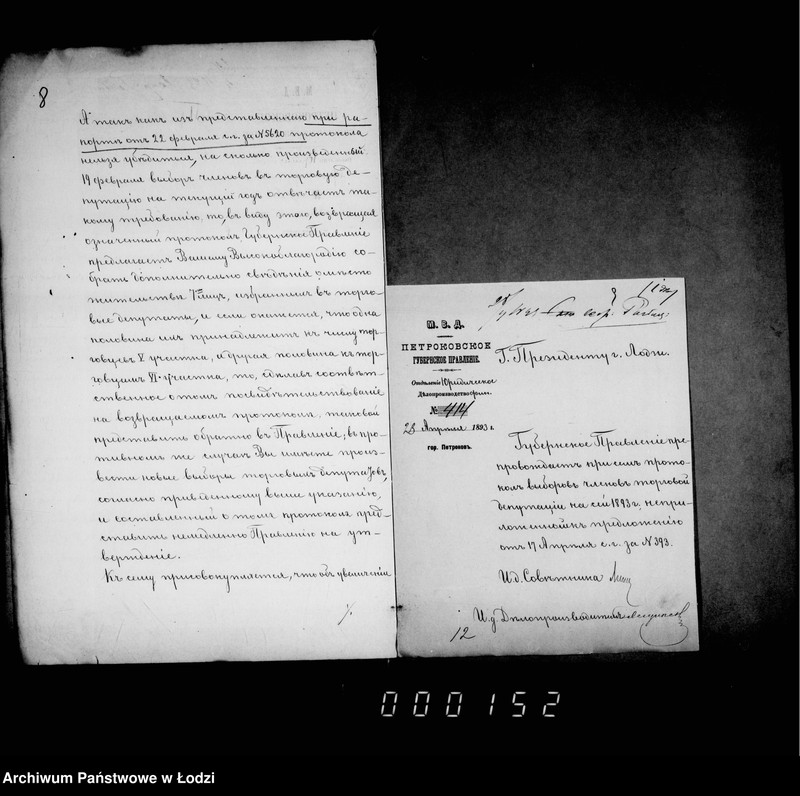 8
А такъ какъ изъ представленнаго при ра-
портѣ отъ 22 февраля с.г. за № 5620 протокола
нельзя убѣдиться, на сколько произведенный
19 февраля выборъ членовъ въ торговую де-
путацію на текущій годъ отвѣчаетъ та-
кому требованію, то, въ виду этого, возвращая
означенный протоколъ Губернское Правленіе
предлагаетъ Вашему Высокоблагородію со-
брать дополнительно свѣдѣнія о мѣсто
жительствѣ лицъ, избранныхъ въ торго-
вые депутаты, и если окажется, что одна
половина ихъ принадлежитъ къ числу тор-
говцевъ V участка, а другая половина къ тор-
говцамъ VI участка, то, сдѣлавъ соотвѣт-
ственное о томъ посвидѣтельствованіе
на возвращаемомъ протоколѣ, таковой
представить обратно въ Правленіе; въ про-
тивномъ же случаѣ Вы имѣете произ-
вести новые выборы торговыхъ депутатовъ,
согласно приведенному выше указанію,
и составленный о томъ протоколъ пред-
ставить немедленно Правленію на ут-
вержденіе.
Къ сему присовокупляется, что объ увеличеніи
М. В. Д.
ПЕТРОКОВСКОЕ
ГУБЕРНСКОЕ ПРАВЛЕНІЕ.
Отдѣленіе Юридическое
Дѣлопроизводство
№ 414
28 Апрѣля 1893 г.
гор. Петроковъ.
Г. Президенту г. Лодзи.
Губернское Правленіе пре-
провождаетъ при семъ прото-
колъ выборовъ членовъ торговой
депутаціи на сей 1893 г., непри-
ложенный къ предложенію
отъ 17 Апрѣля с.г. за № 393.
И.д. Совѣтника
И.д. Дѣлопроизводителя
12
000152
Archiwum Państwowe w Łodzi